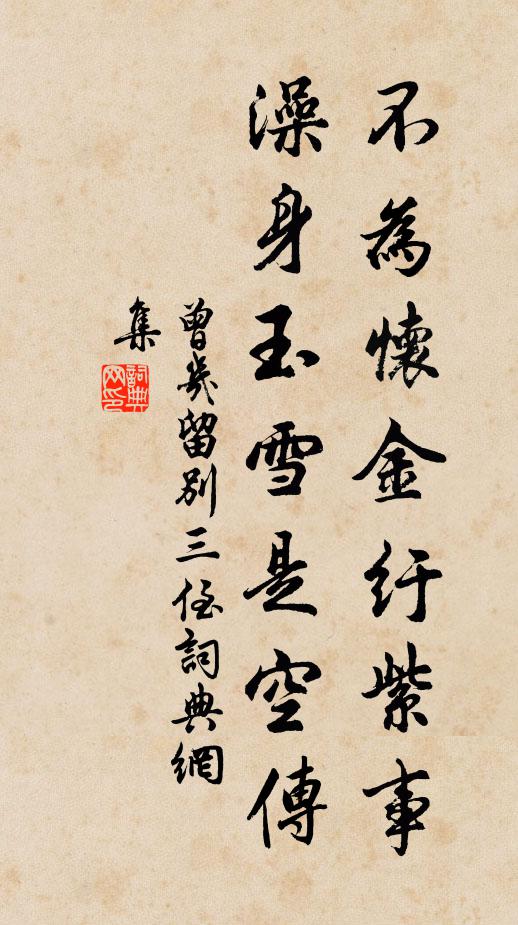 不為懷金紆紫事
澡身玉雪是空傳
曾幾留別三侄詞典網
集
詞典
网印